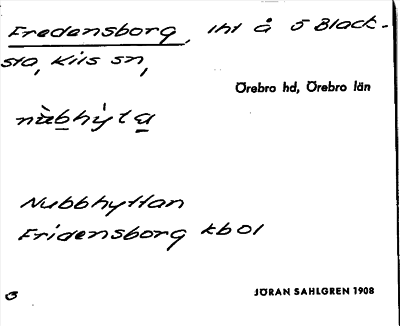 Fredensborg, lht å S Black-
sta, Kils sn,
Örebro hd, Örebro län
nàbhỳta
Nubbhyttan
Fridensborg kb01
JÖRAN SAHLGREN 1908